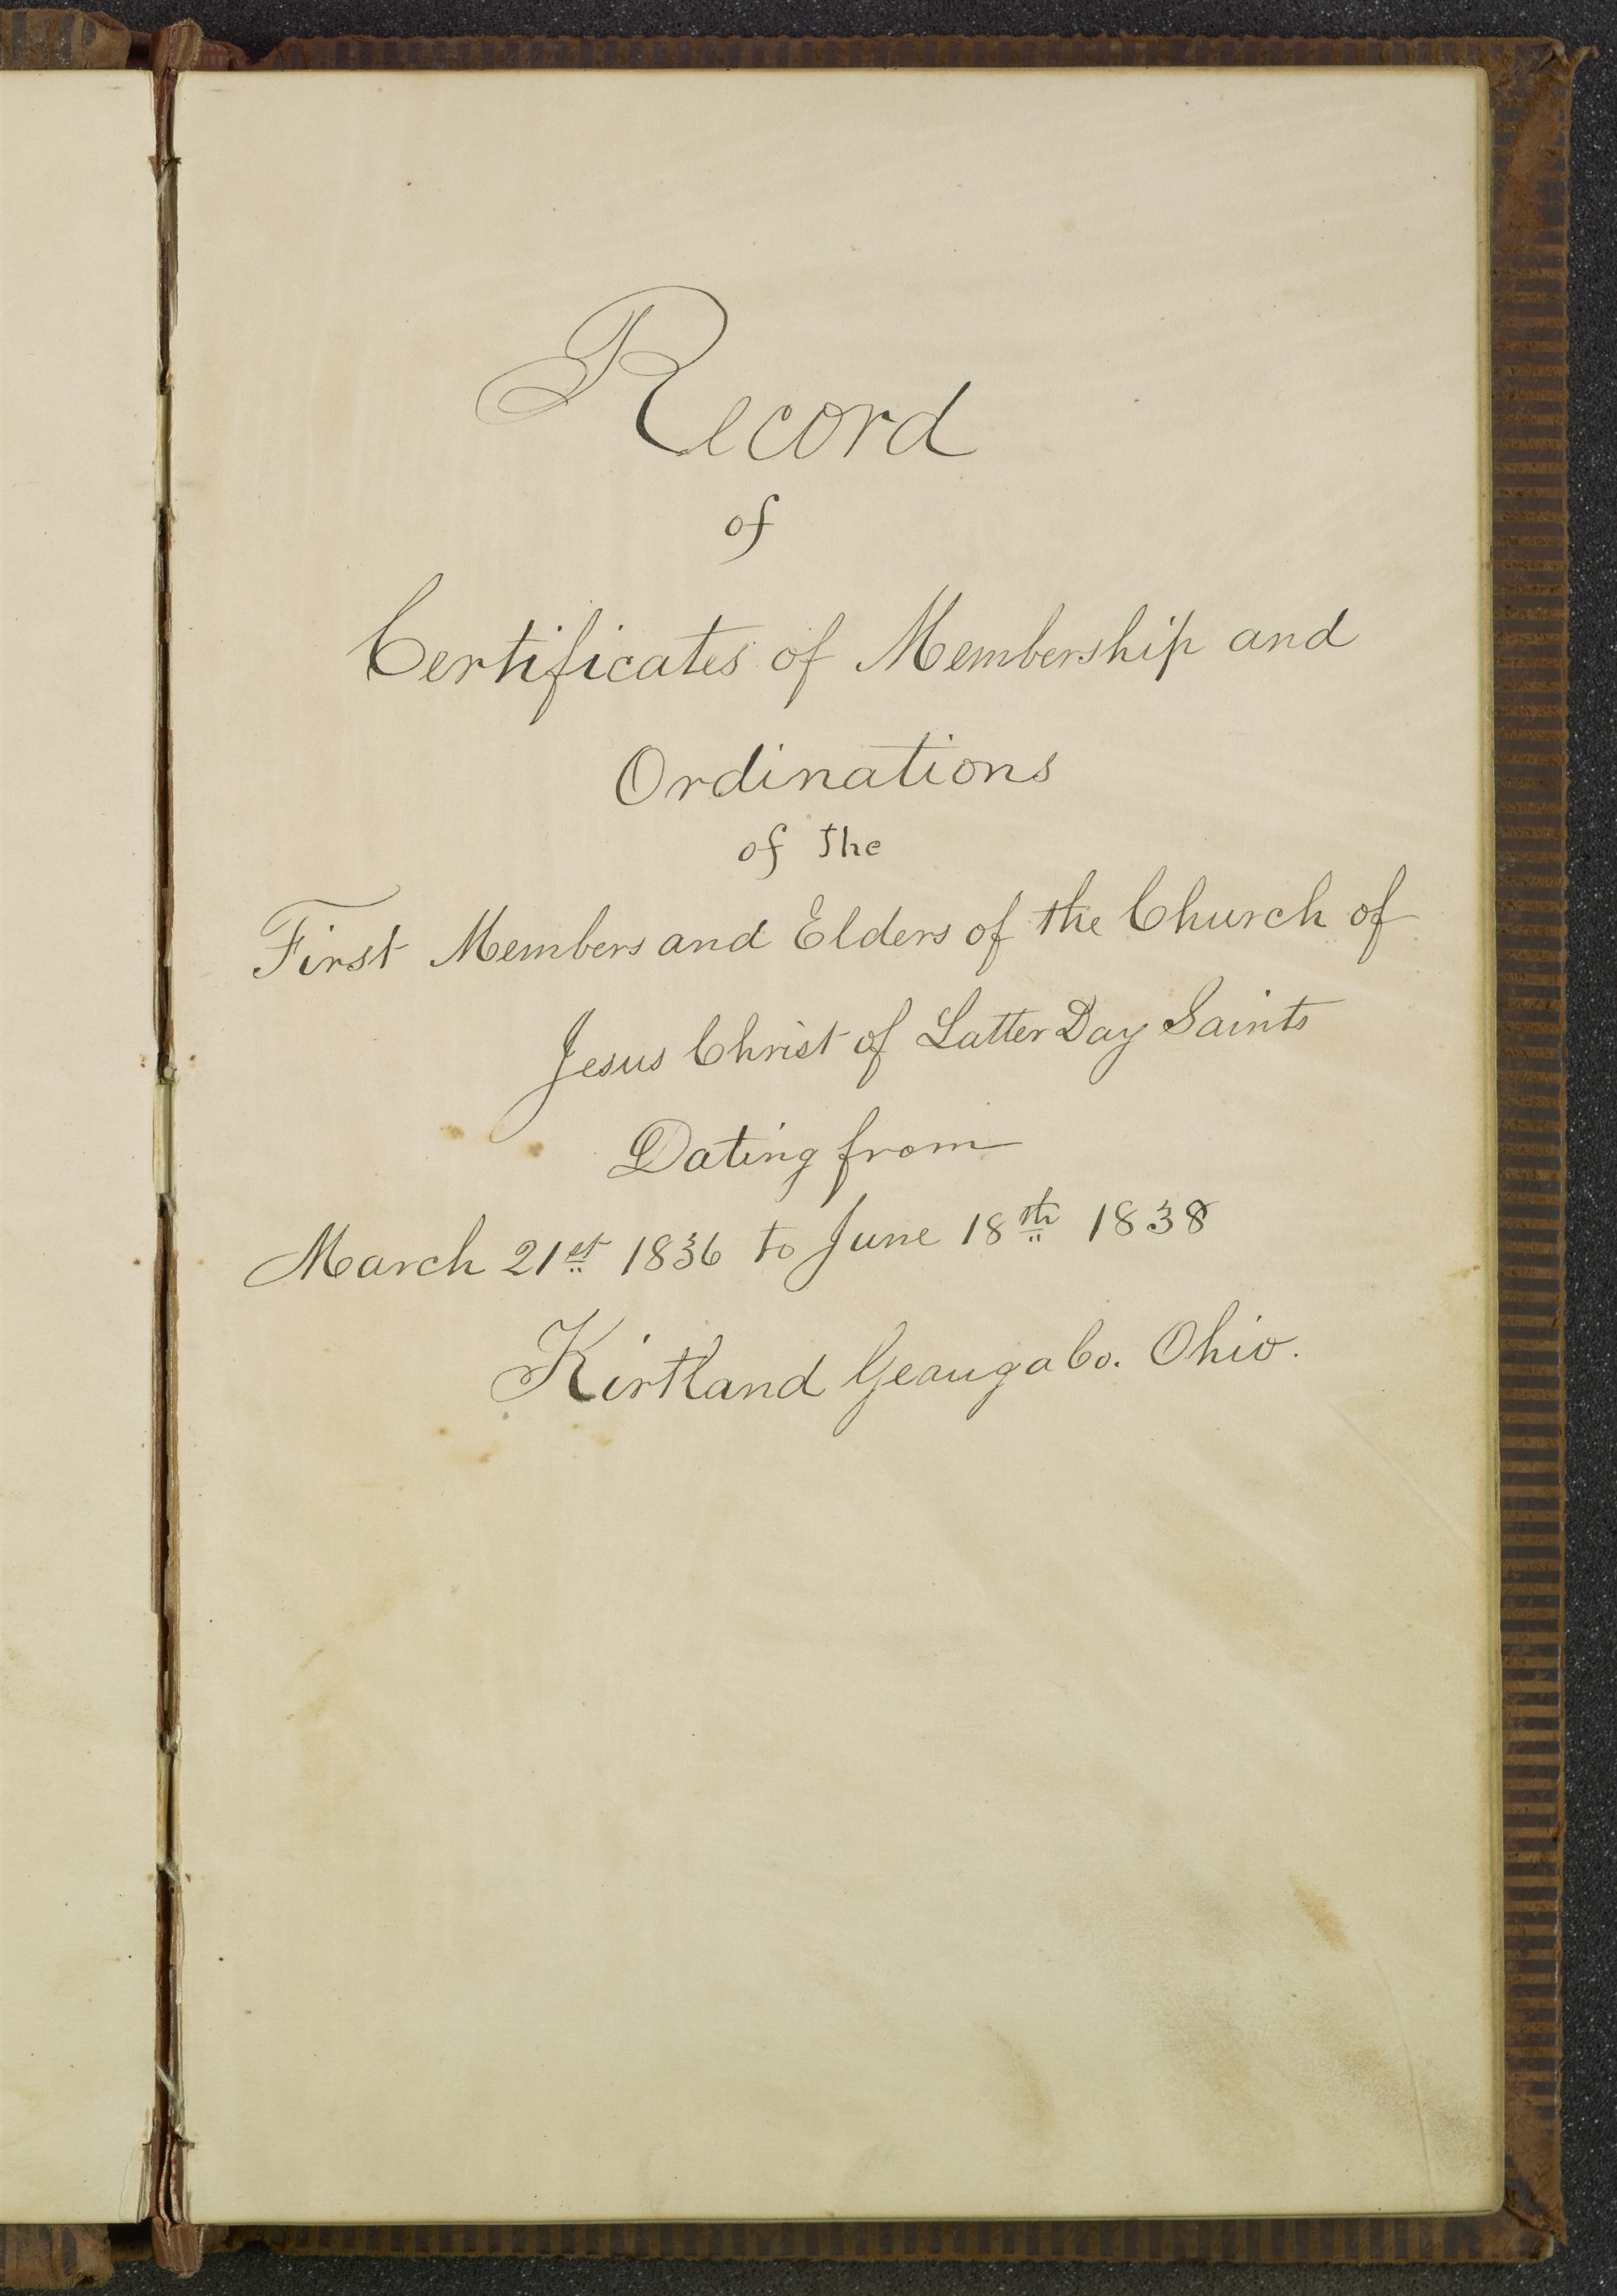 Record
of
Certificates of Membership and
Ordinations
of the
First Members and Elders of the Church of
Jesus Christ of Latter Day Saints
Dating from
March 21st 1836 to June 18th 1838
Kirtland Geauga Co. Ohio.